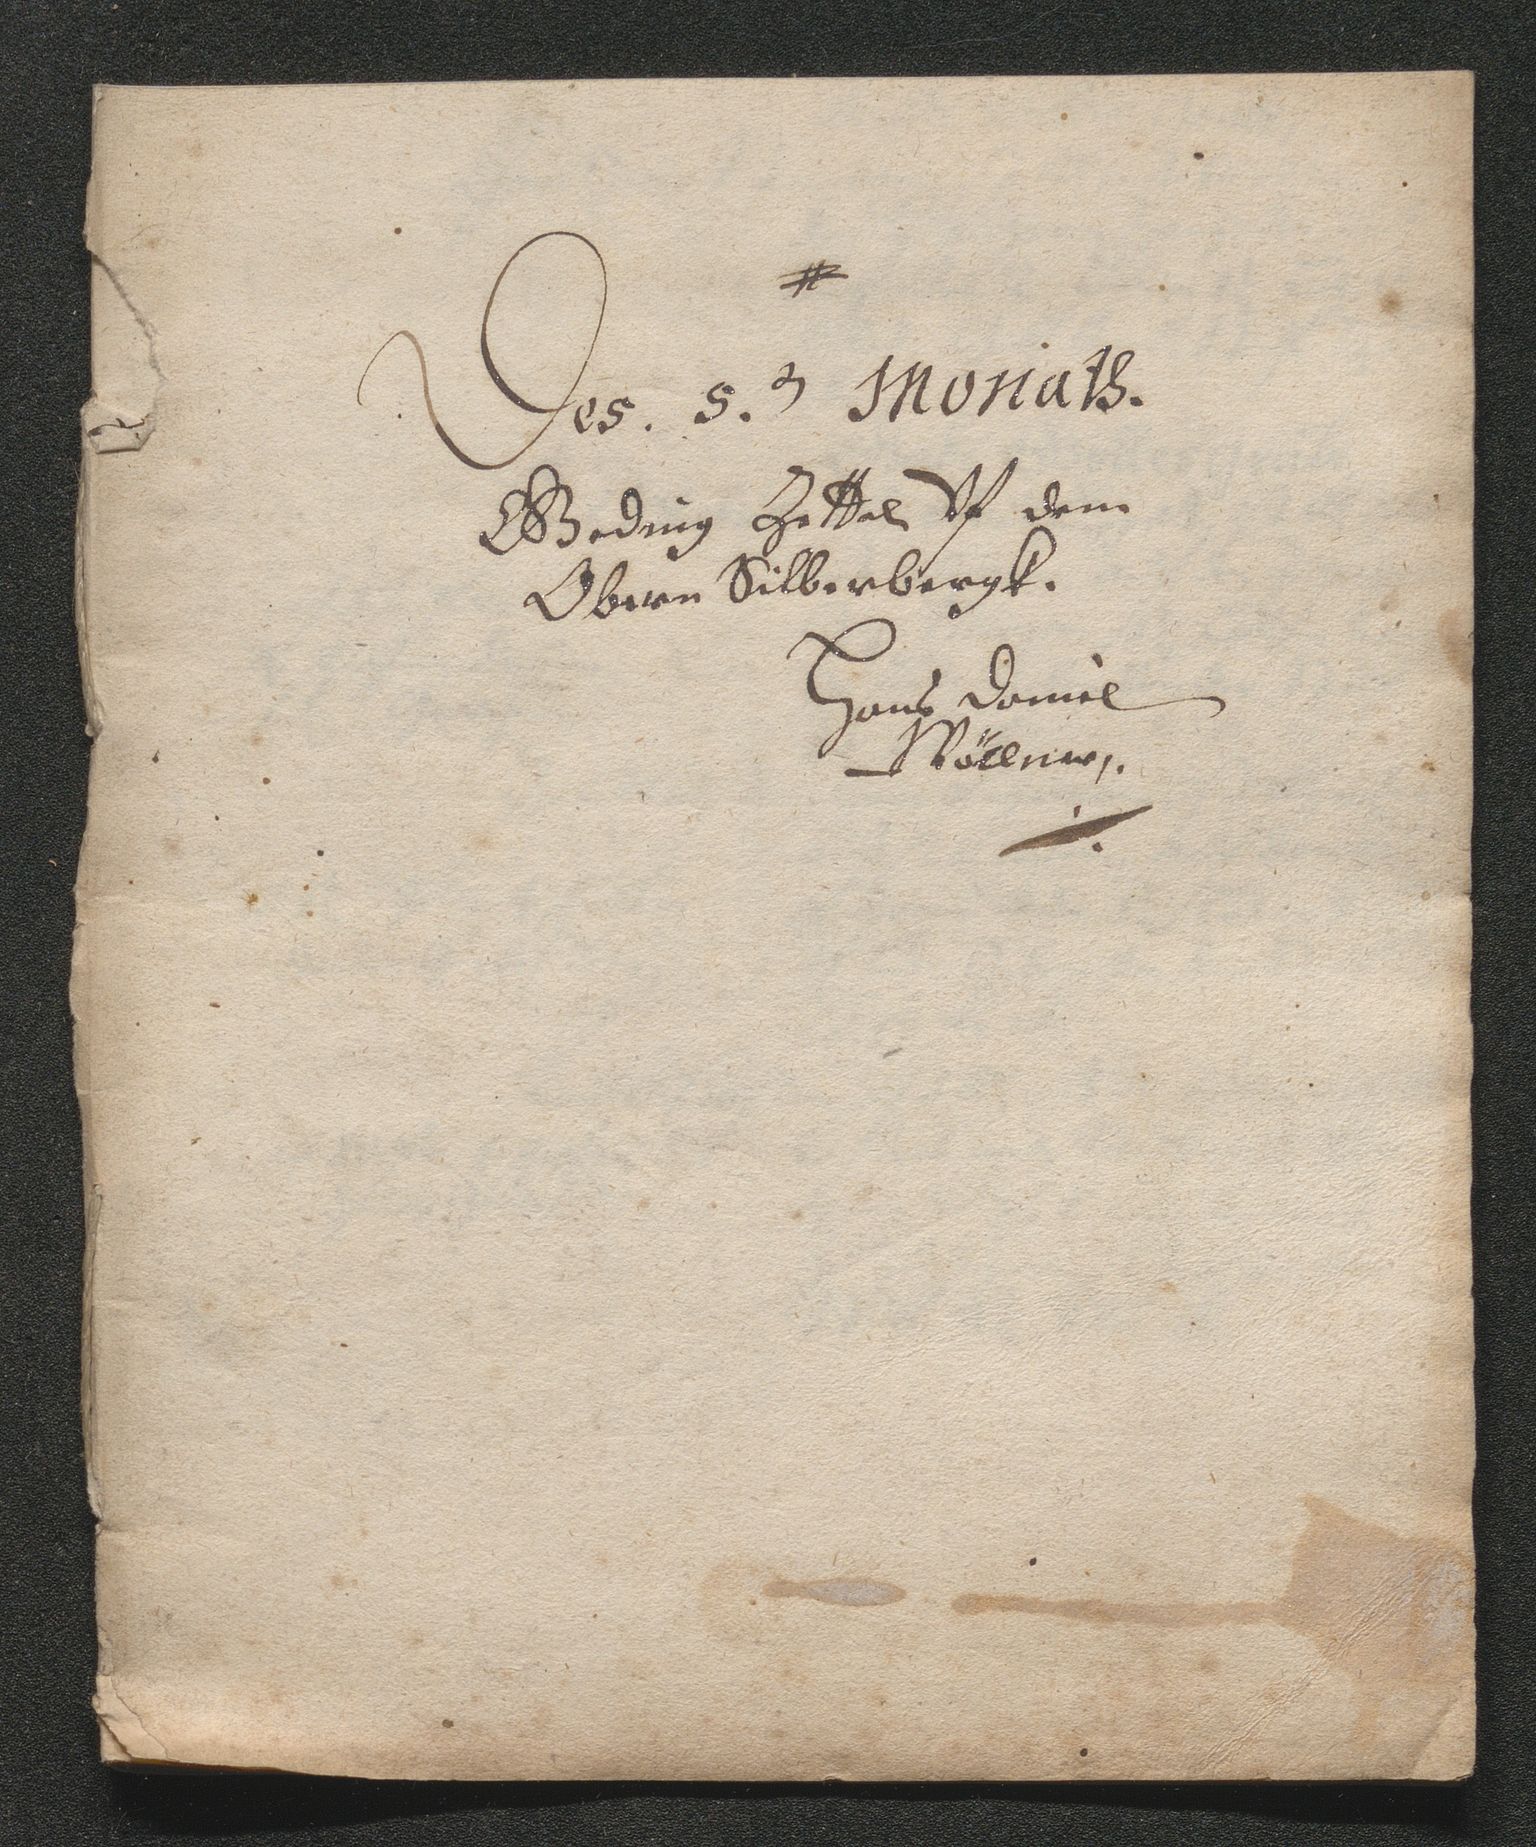 Des. 5.n Monats.
Geding Zettel Uf dem
Obern Silberbergk.
Hans Daniel